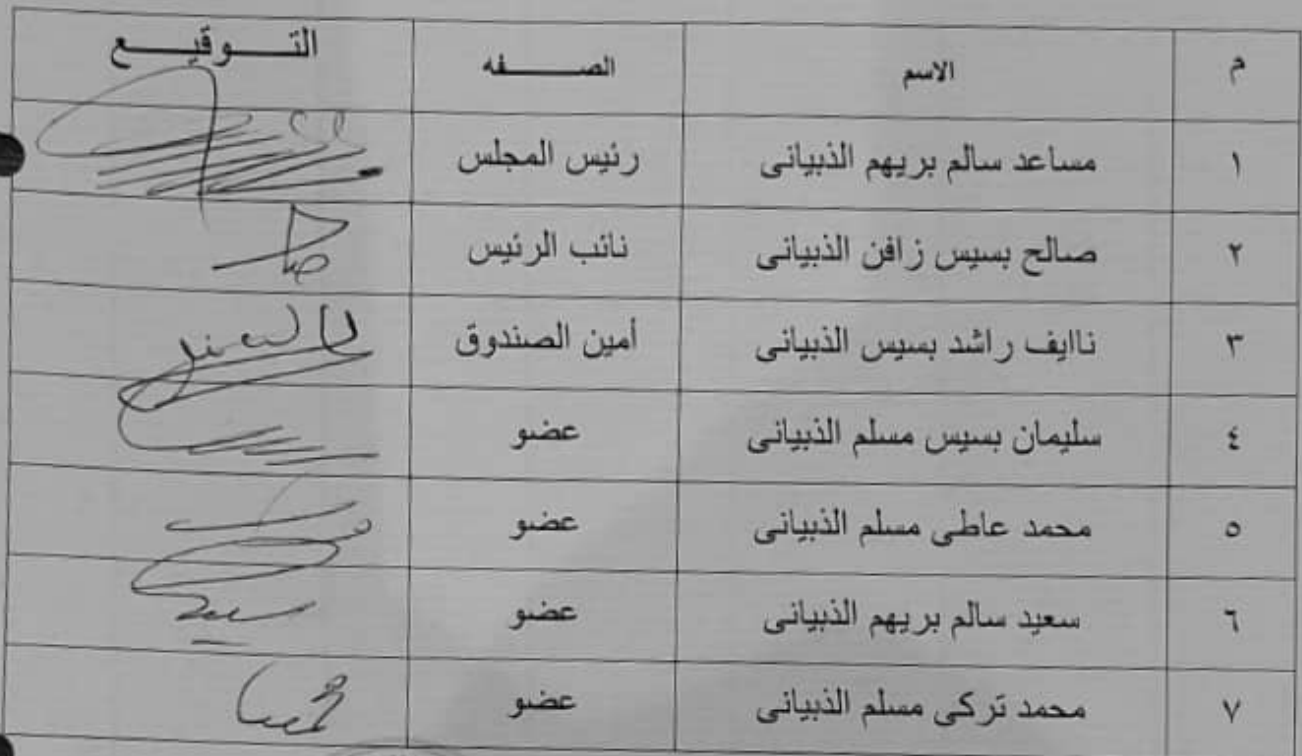 م الاسم الصفه التوقيع
١ مساعد سالم بريهم الذبيانى رئيس المجلس
٢ صالح بسيس زافن الذبيانى نائب الرئيس
٣ ناايف راشد بسيس الذبيانى أمين الصندوق
٤ سليمان بسيس مسلم الذبيانى عضو
٥ محمد عاطى مسلم الذبيانى عضو
٦ سعيد سالم بريهم الذبيانى عضو
٧ محمد تركى مسلم الذبيانى عضو